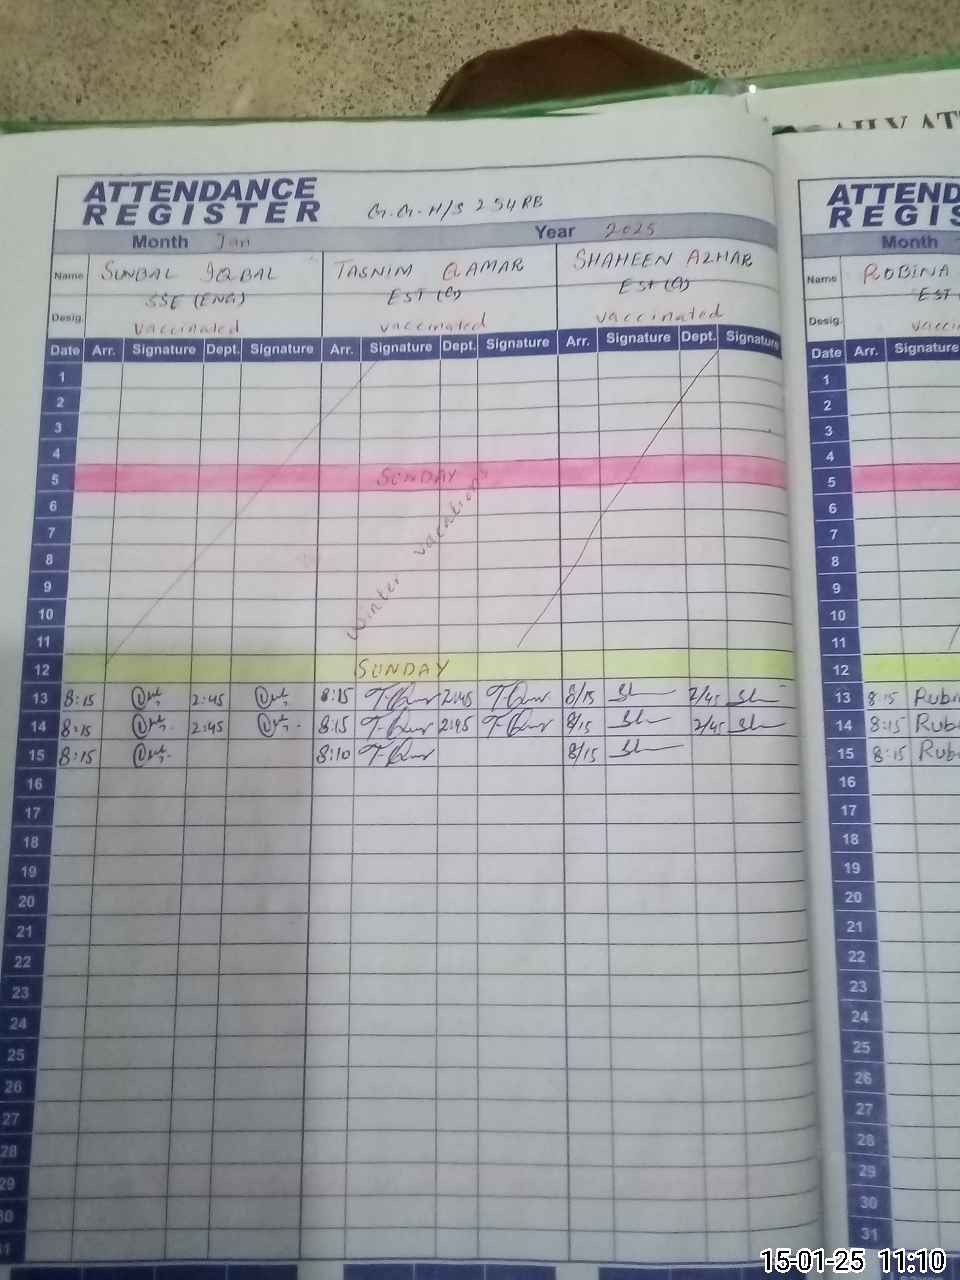 AILY AT
ATTENDANCE
REGISTER
G.G.H/S 254RB
Month Jan Year 2025
Name SUNBAL IQBAL TASNIM QAMAR SHAHEEN AZHAR
SSE (ENG) EST (G) EST (G)
Desig. vaccinated vaccinated vaccinated
Date Arr. Signature Dept. Signature Arr. Signature Dept. Signature Arr. Signature Dept. Signature
1
2
3
4
5 SUNDAY
6
7
8
9
10
11
Winter vacations
12 SUNDAY
13 8:15 2:45 8:15 2:45 8/15 2/45
14 8:15 2:45 8:15 2:45 8/15 2/45
15 8:15 8:10 8/15
16
17
18
19
20
21
22
23
24
25
26
27
28
29
30
31
ATTEND
REGIS
Month
Name ROBINA
EST
Desig. vacci
Date Arr. Signature
1
2
3
4
5
6
7
8
9
10
11
12
13 8:15 Rub
14 8:15 Rub
15 8:15 Rub
16
17
18
19
20
21
22
23
24
25
26
27
28
29
30
31
15-01-25 11:10